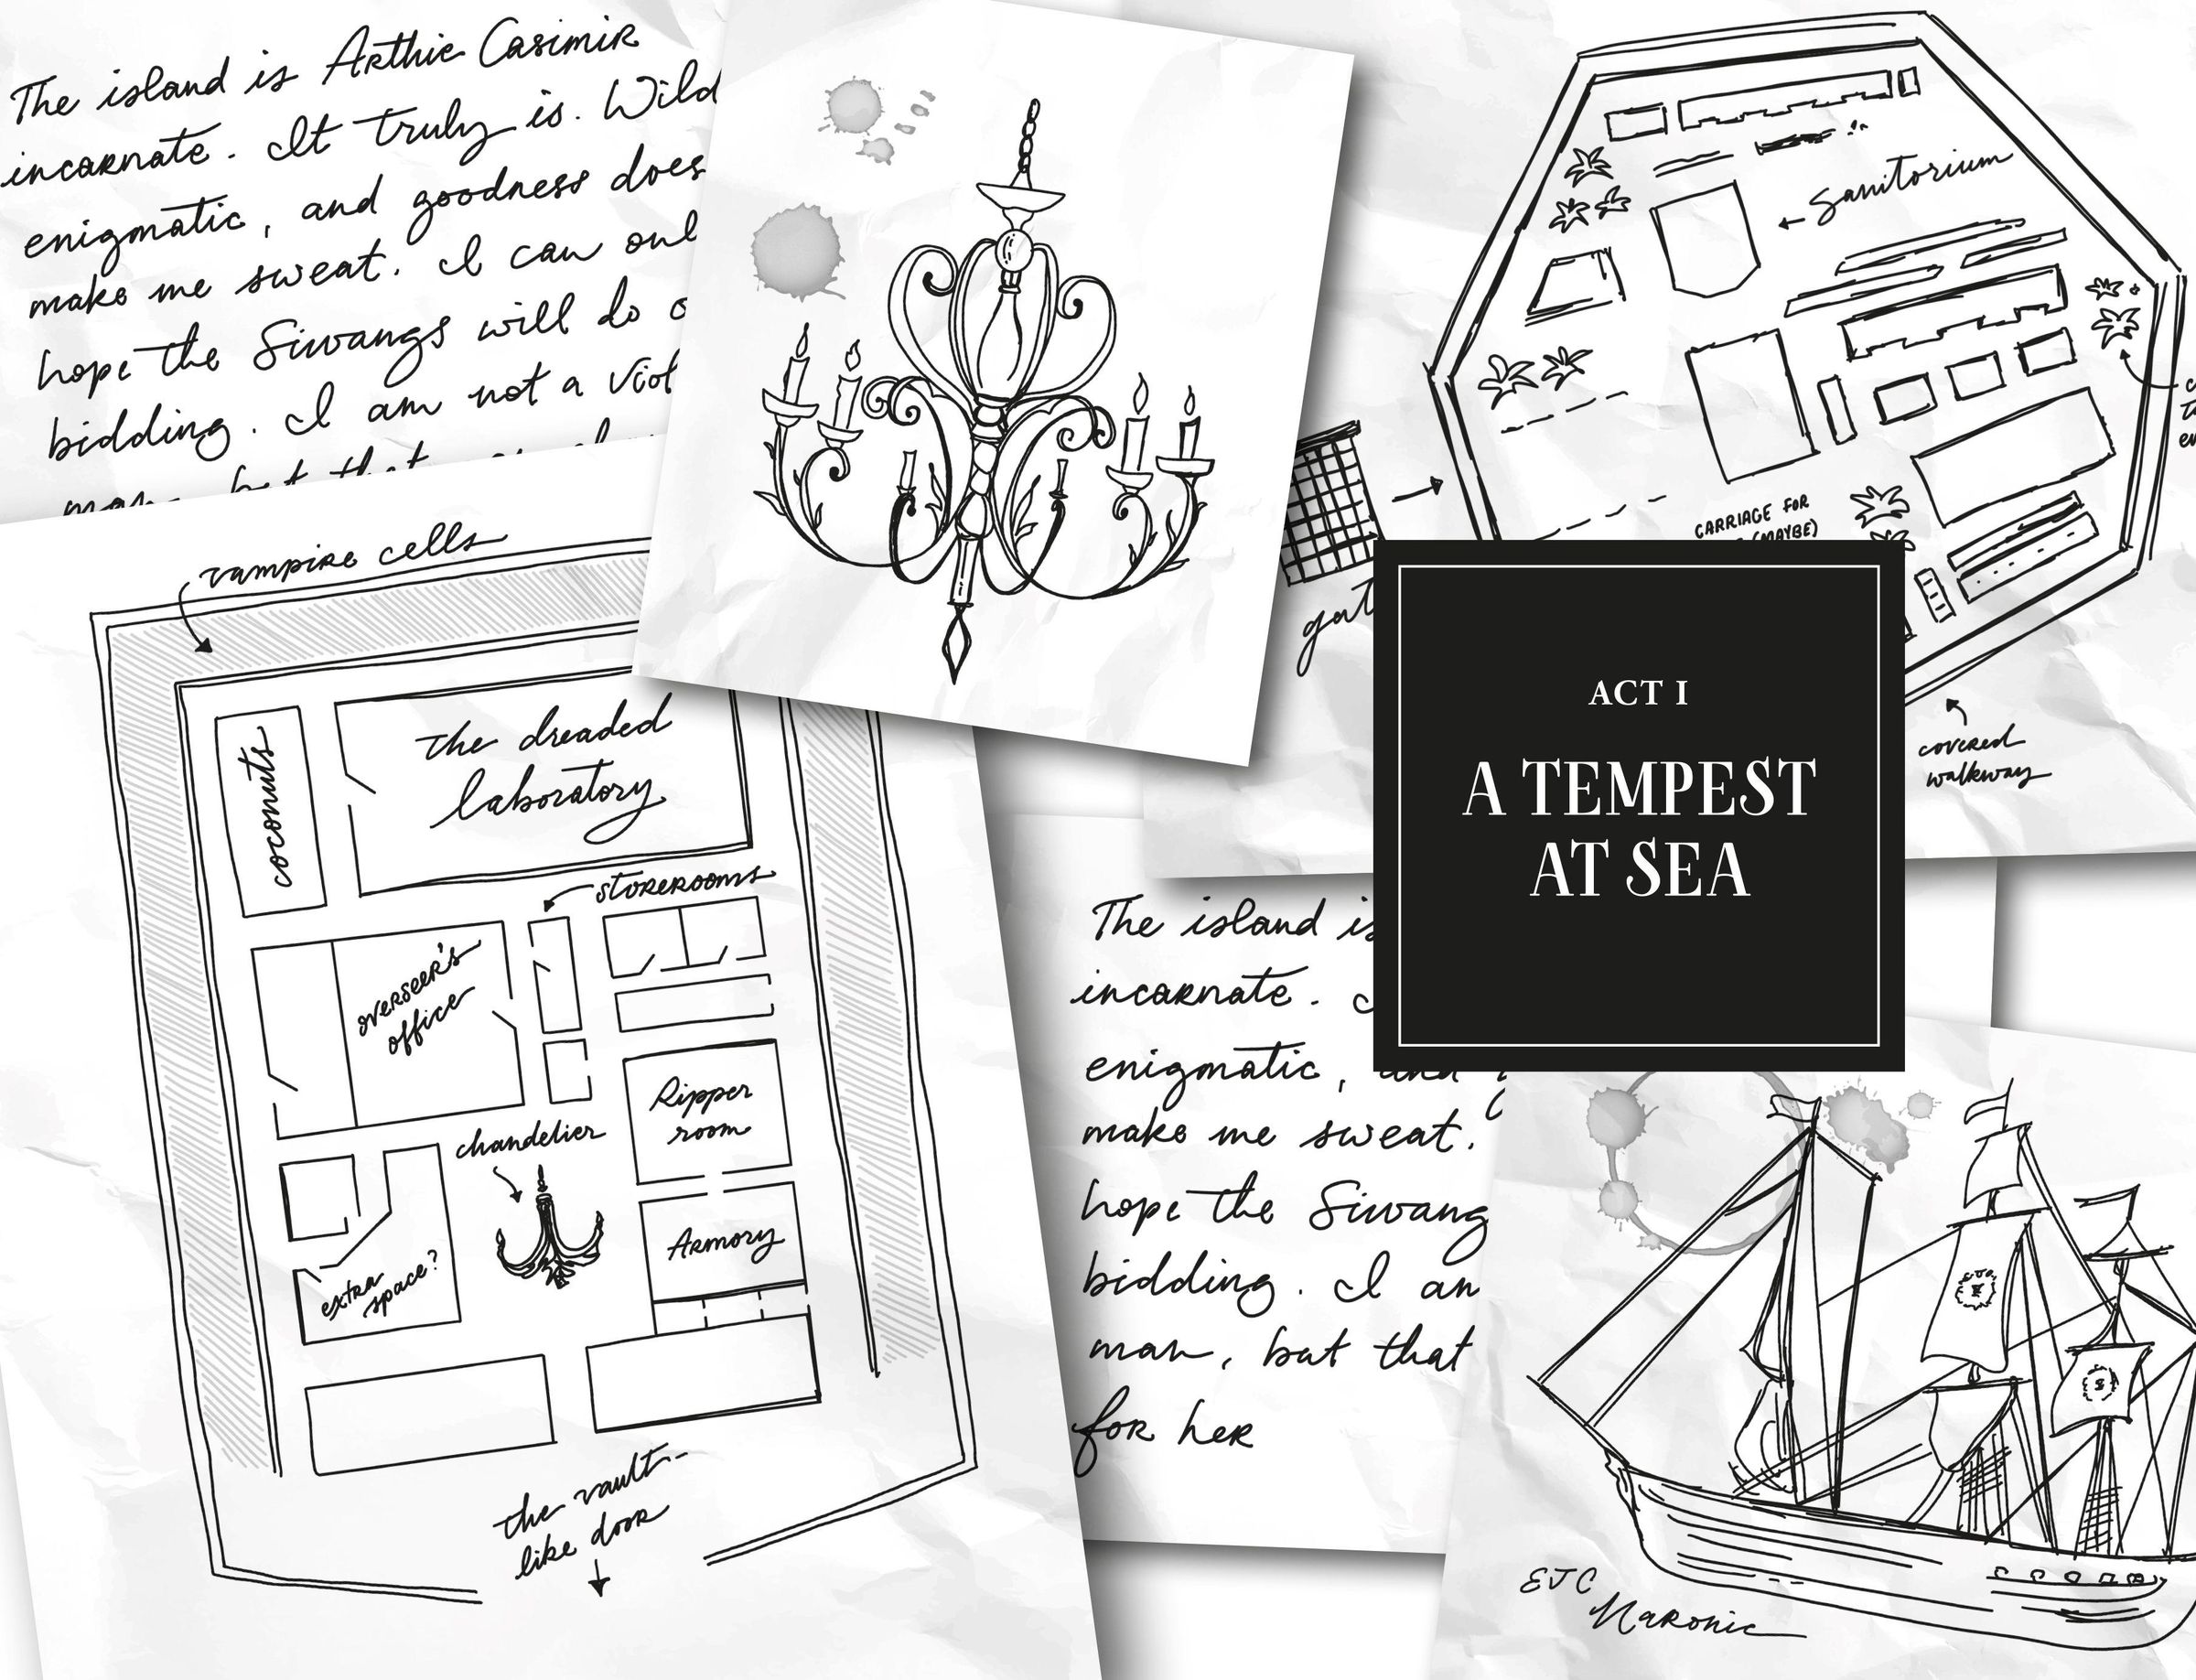 The island is Arthie Casimir
incarnate. It truly is. Wild
enigmatic, and goodness does
make me sweat. I can
hope the Siwangs will do
bidding. I am not a
man, but that
vampire cells
coconuts
the dreaded
laboratory
storerooms
overseer's
office
Ripper
room
chandelier
Armory
extra
space?
the vault-
like door
Sanitorium
CARRIAGE FOR
(MAYBE)
covered
walkway
ACT I
A TEMPEST
AT SEA
The island is
incarnate.
enigmatic, and
make me sweat.
hope the Siwang
bidding. I am
man, but that
for her
EJC
Naronic